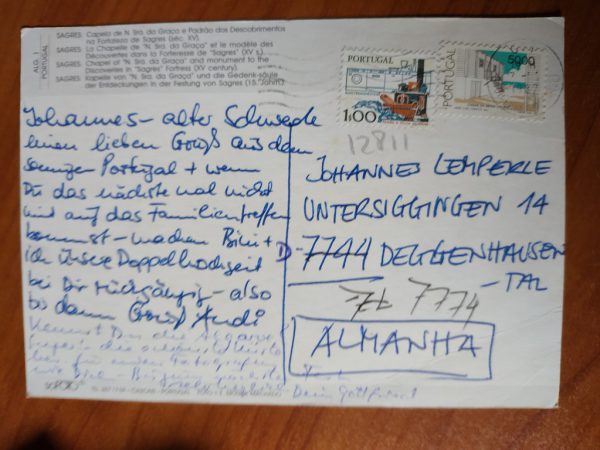 ALG. 1
PORTUGAL
SAGRES Capela de N. Sra. da Graça e Padrão dos Descobrimentos
na Fortaleza de Sagres (séc. XV).
SAGRES La Chapelle de "N. Sra. da Graça" et le modèle des
Découvertes dans la Forteresse de "Sagres" (XV s.).
SAGRES Chapel of "N. Sra. da Graça" and monument to the
Discoveries in "Sagres" Fortress (XV century).
SAGRES Kapelle von "N. Sra. da Graça" und die Gedenk-säule
der Entdeckungen in der Festung von Sagres (15. Jahrt.).
PORTUGAL
1$00
PORTUGAL
50$00
12811
Johannes - alter Schwede
einen lieben Gruß aus dem
Portugal + wenn
Du das nächste mal nicht
mit auf das Familientreffen
kommst - machen Bibi +
ich unsere Doppelhochzeit
bei Dir rückgängig - also
bis dann Gruß Andi
Kennst Du die
die
für
wie
Dein Gottfried
JOHANNES LEMPERLE
UNTERSIGGINGEN 14
D-7744 DEGGENHAUSEN
-TAL
7774
ALMANHA